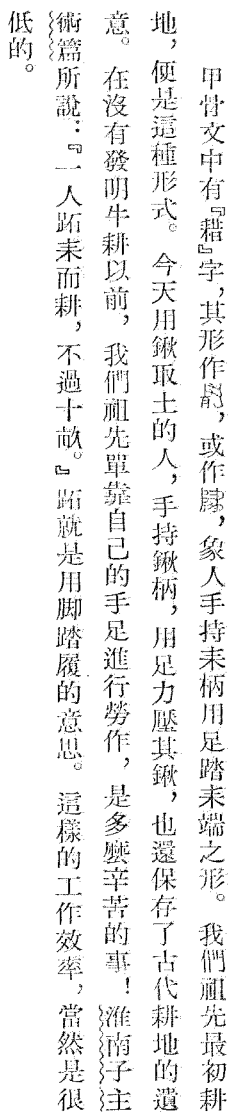 甲骨文中有『耤』字，其形作，或作，象人手持耒柄用足踏耒端之形。我們祖先最初耕
地，便是這種形式。今天用鍬取土的人，手持鍬柄，用足力壓其鍬，也還保存了古代耕地的遺
意。在沒有發明牛耕以前，我們祖先單靠自己的手足進行勞作，是多麼辛苦的事！淮南子主
術篇所說：『一人跖耒而耕，不過十畝。』跖就是用脚踏履的意思。這樣的工作效率，當然是很
低的。